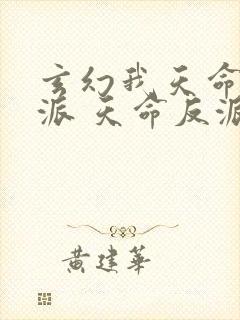 玄幻我天命
派 天命反派
黄建华